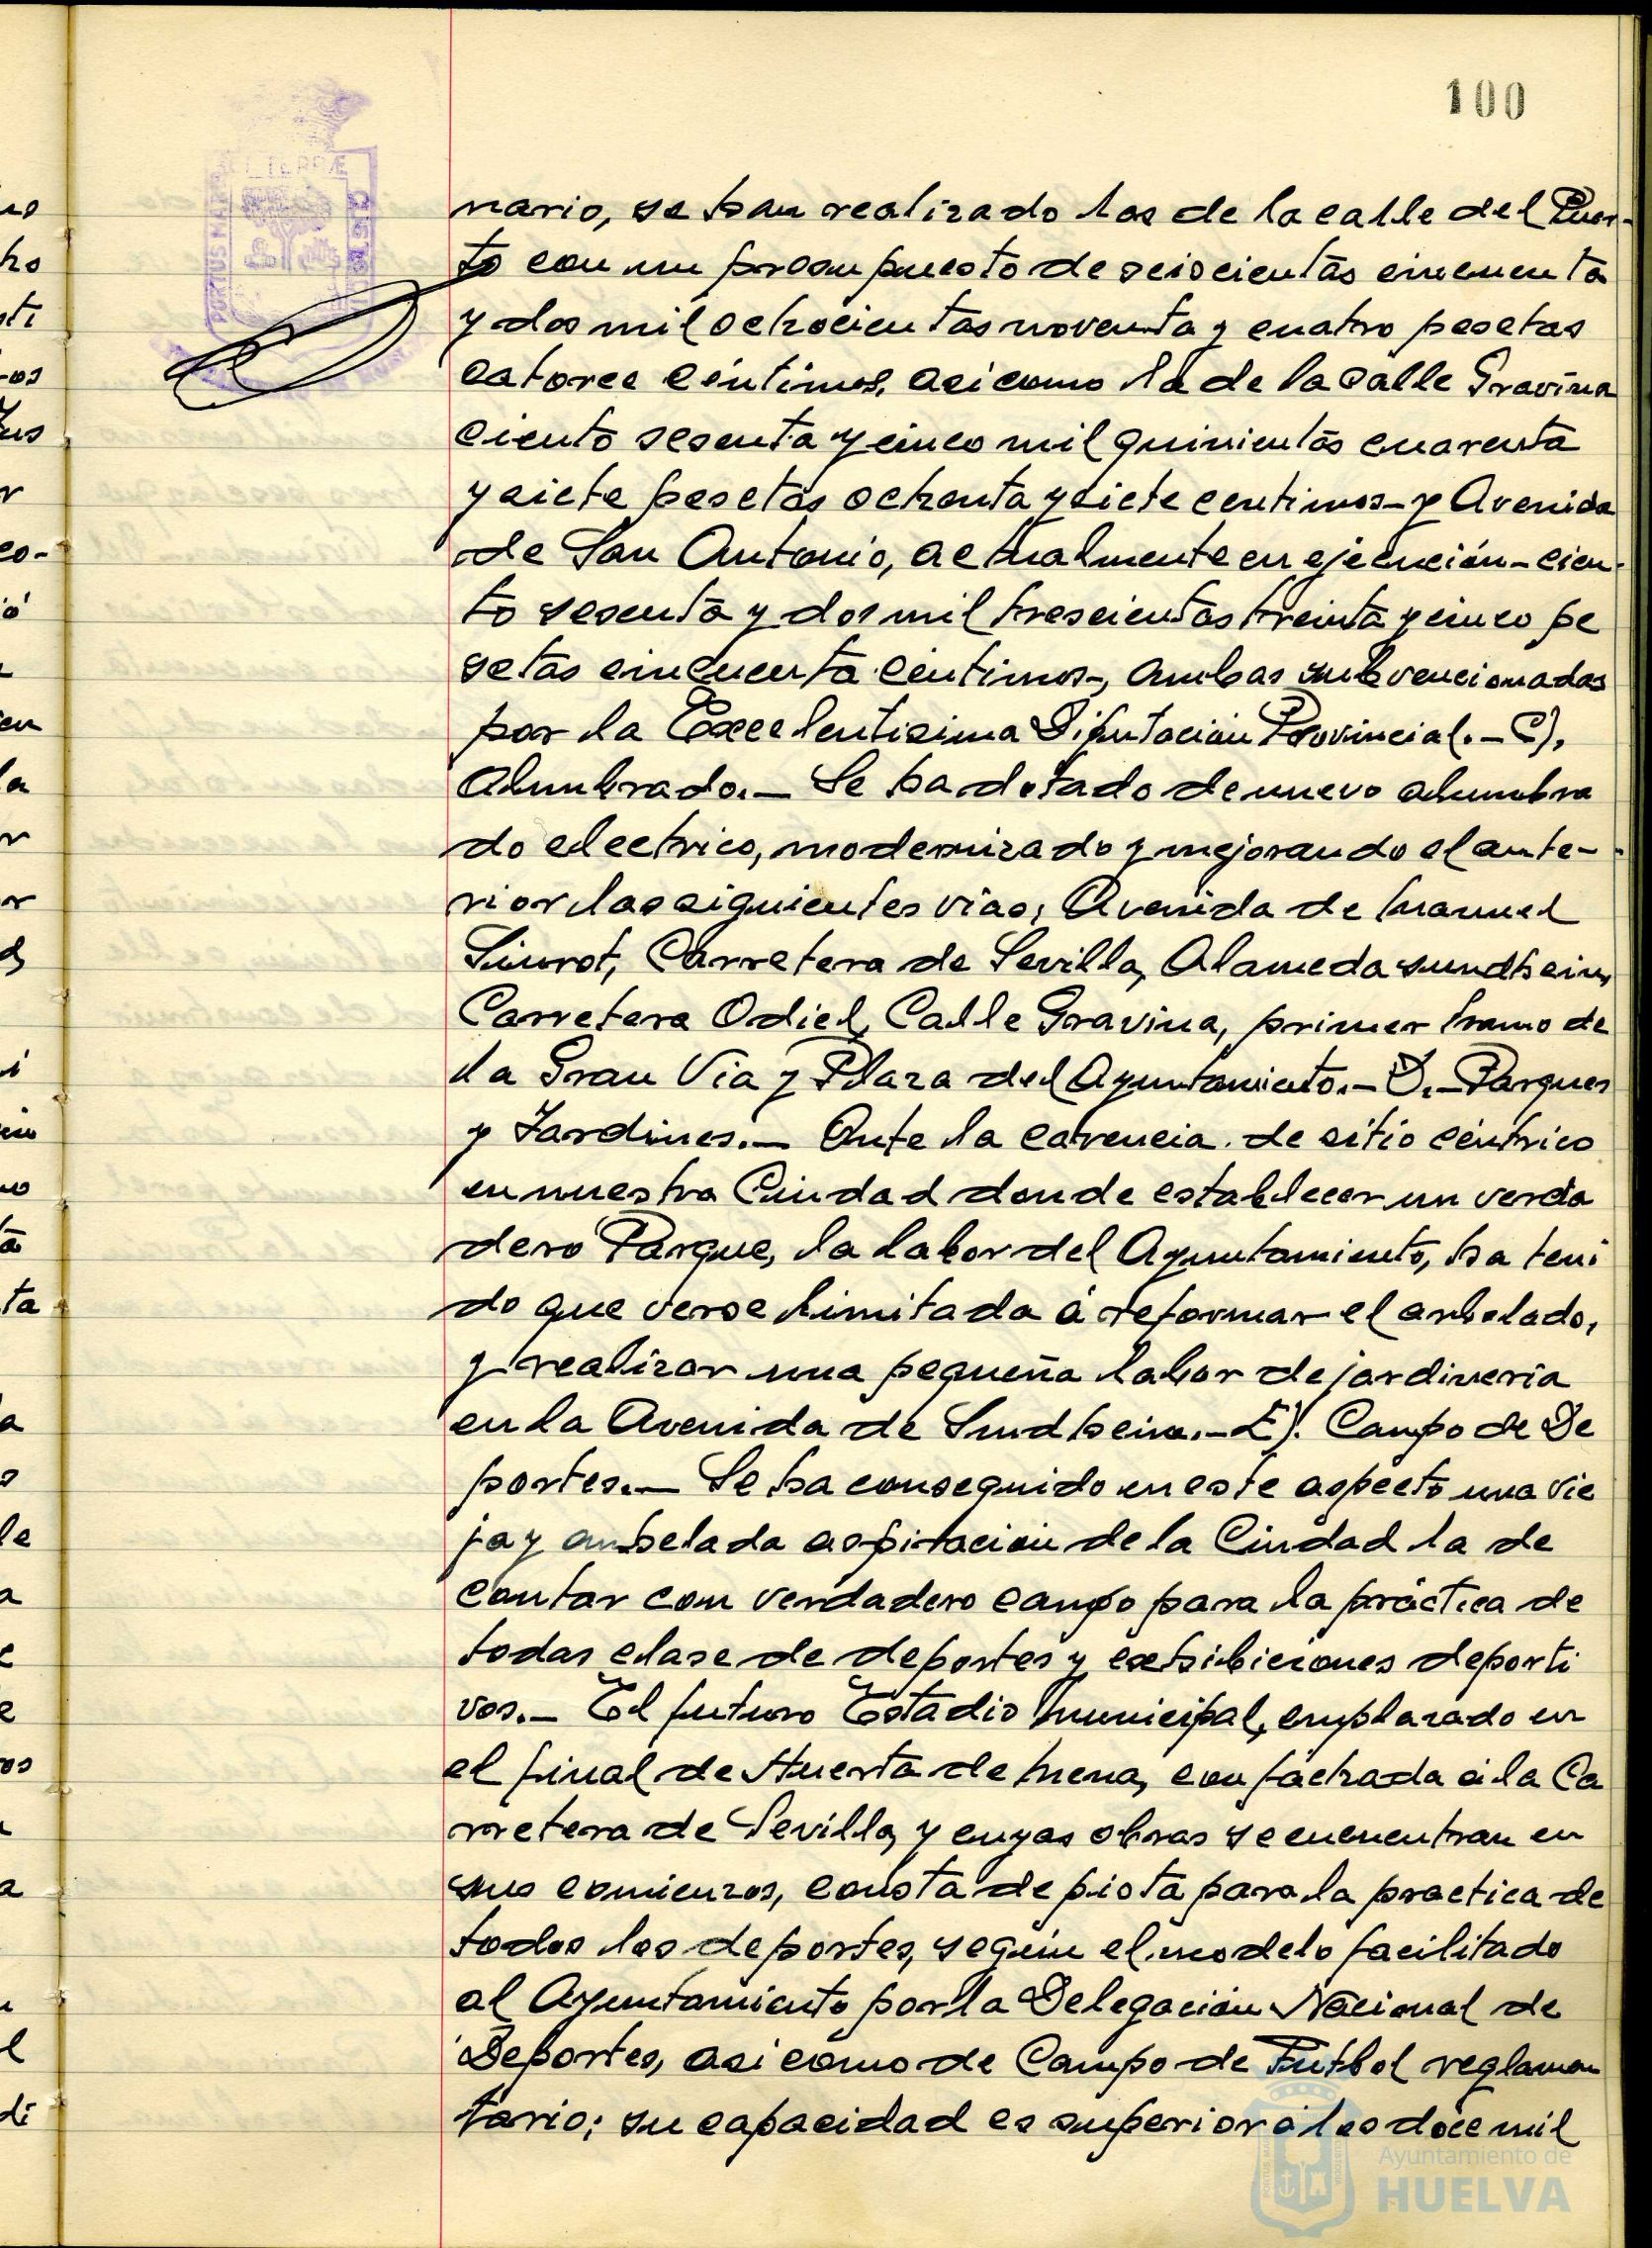 100
nario, se han realizado las de la calle del Puer-
to con un presupuesto de seiscientas cincuenta
y dos mil ochocientas noventa y cuatro pesetas
catorce céntimos, asi como la de la calle Gravina
ciento sesenta y cinco mil quinientas cuarenta
y siete pesetas ochenta y siete centimos- y Avenida
de San Antonio, actualmente en ejecución- cien-
to sesenta y dos mil trescientas treinta y cinco pe
setas cincuenta centimos-, ambas subvencionadas
por la Excelentisima Diputación Provincial.- C).
Alumbrado.- Se ha dotado de nuevo alumbra
do electrico, modernizado y mejorando el ante-
rior las siguientes vias; Avenida de Manuel
Siurot, Carretera de Sevilla, Alameda sundheim,
Carretera Odiel, Calle Gravina, primer tramo de
la Gran Via y Plaza del Ayuntamiento.- D.- Parques
y Jardines.- Ante la carencia de sitio céntrico
en nuestra Ciudad donde establecer un verda
dero Parque, la labor del Ayuntamiento, ha teni
do que verse limitada á reformar el arbolado,
y realizar una pequeña labor de jardineria
en la Avenida de Sundheim.- E). Campo de De
portes.- Se ha conseguido en este aspecto una vie
ja y anhelada aspiración de la Ciudad la de
contar con verdadero campo para la práctica de
todas clase de deportes y exhibiciones deporti
vos.- El futuro Estadio Municipal, emplazado en
el final de Huerta de Mena, con fachada á la Ca
rretera de Sevilla, y cuyas obras se encuentran en
sus comienzos, consta de pista para la practica de
todos los deportes, según el modelo facilitado
al Ayuntamiento por la Delegación Nacional de
Deportes, asi como de Campo de Futbol reglamen
tario; su capacidad es superior á los doce mil
Ayuntamiento de
HUELVA